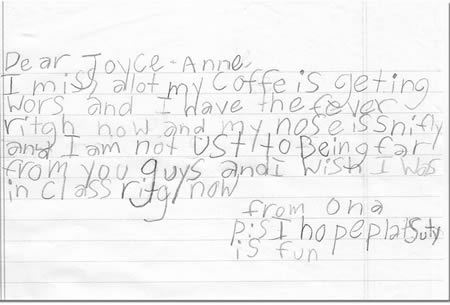 Dear Joyce-Anne
I miss alot my coffe is geting
wors and I have the fever
ritgh now and my nose is snifly
and I am not ustI to Being far
from you guys and i wish I was
in class ritg now
from Ona
P.S I hope
is fun